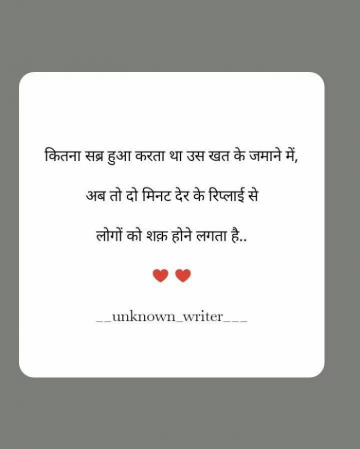 कितना सब्र हुआ करता था उस खत के जमाने में,
अब तो दो मिनट देर के रिप्लाई से
लोगों को शक़ होने लगता है..
__unknown_writer___